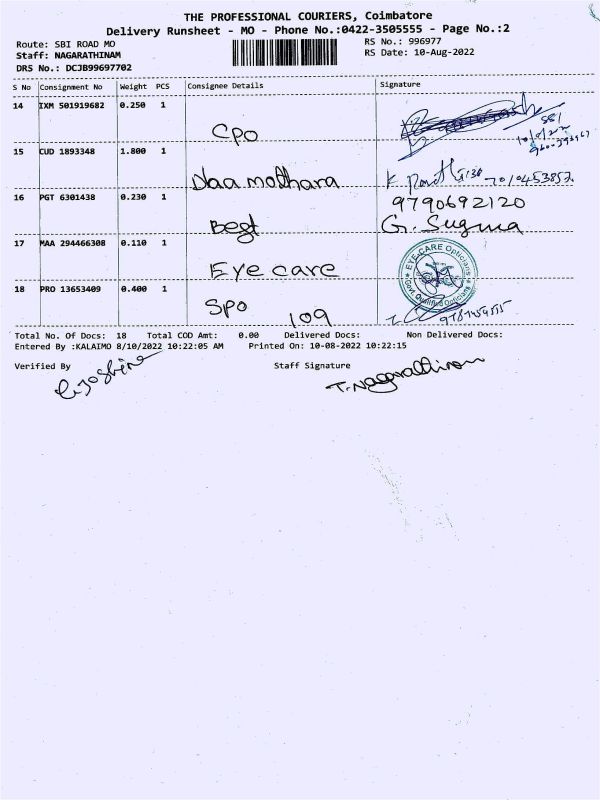 THE PROFESSIONAL COURIERS, Coimbatore
Delivery Runsheet - MO - Phone No.:0422-3505555 - Page No.:2
Route: SBI ROAD MO
RS No.: 996977
Staff: NAGARATHINAM
RS Date: 10-Aug-2022
DRS No.: DCJB99697702
S No Consignment No Weight PCS Consignee Details Signature
14 IXM 501919682 0.250 1
CPO
SBI
15 CUD 1893348 1.800 1
Naa mathara
7010453857
16 PGT 6301438 0.230 1
Best
9790692120
G. Suguna
17 MAA 294466308 0.110 1
Eye care
EYE CARE Opticians
Govt. Qualified Opticians
18 PRO 13653409 0.400 1
SPO 109
Total No. Of Docs: 18 Total COD Amt: 0.00 Delivered Docs: Non Delivered Docs:
Entered By :KALAIMO 8/10/2022 10:22:05 AM Printed On: 10-08-2022 10:22:15
Verified By Staff Signature
T. Nagarathinam